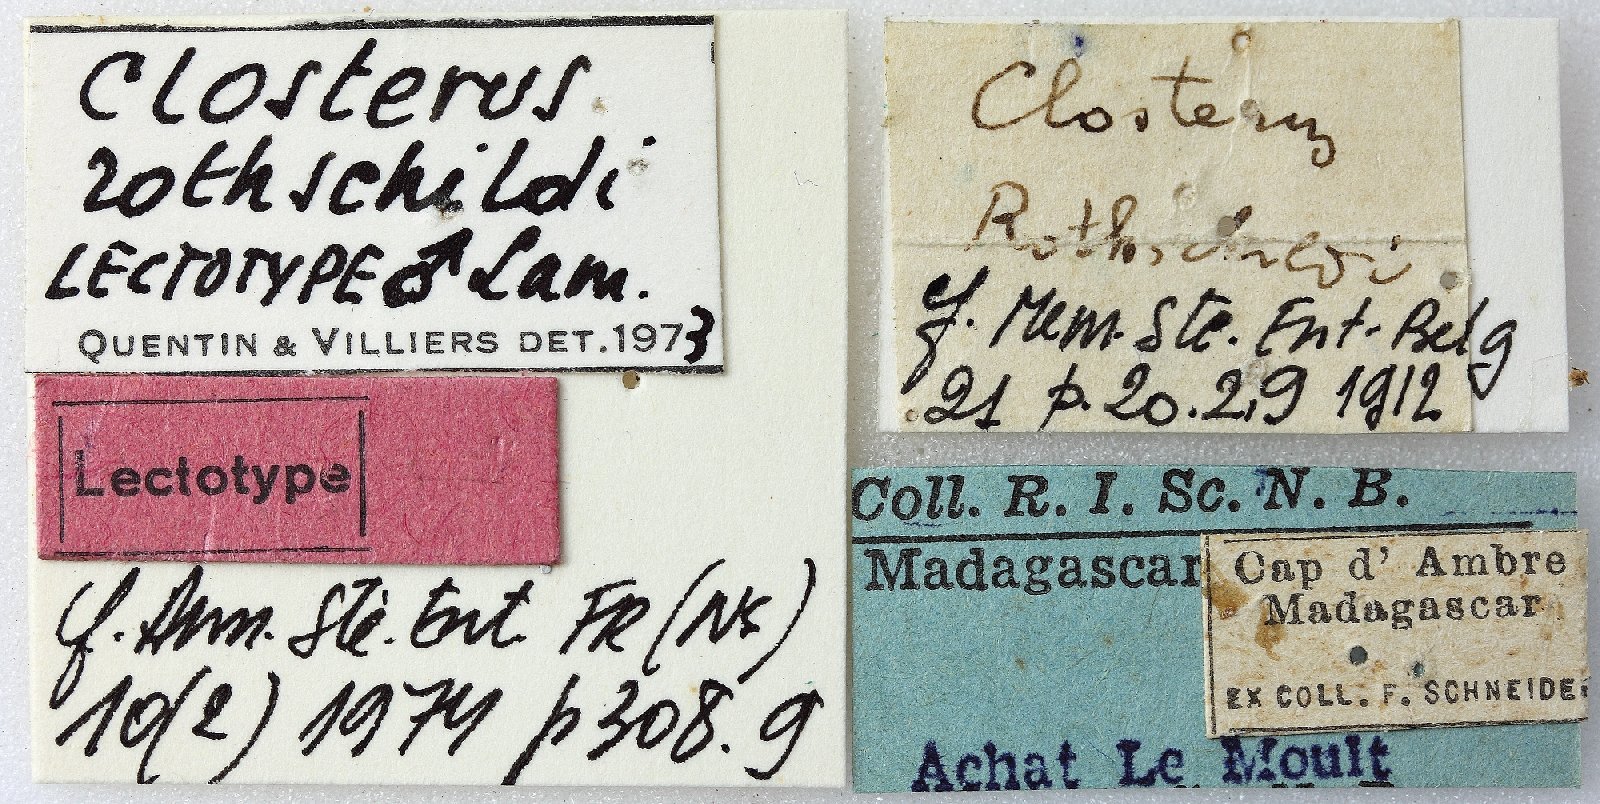 Closterus
rothschildi
LECTOTYPE ♂ Lam.
QUENTIN & VILLIERS DET. 1973
Lectotype
cf. Ann. Sté. Ent. FR (NS)
10(2) 1974 p 308. 9
Closterus
Rothschildi
cf. Mem. Ste. Ent. Belg
21 p. 20. 2, 9 1912
Coll. R. I. Sc. N. B.
Madagascar
Cap d' Ambre
Madagascar
EX COLL. F. SCHNEIDER
Achat Le Moult